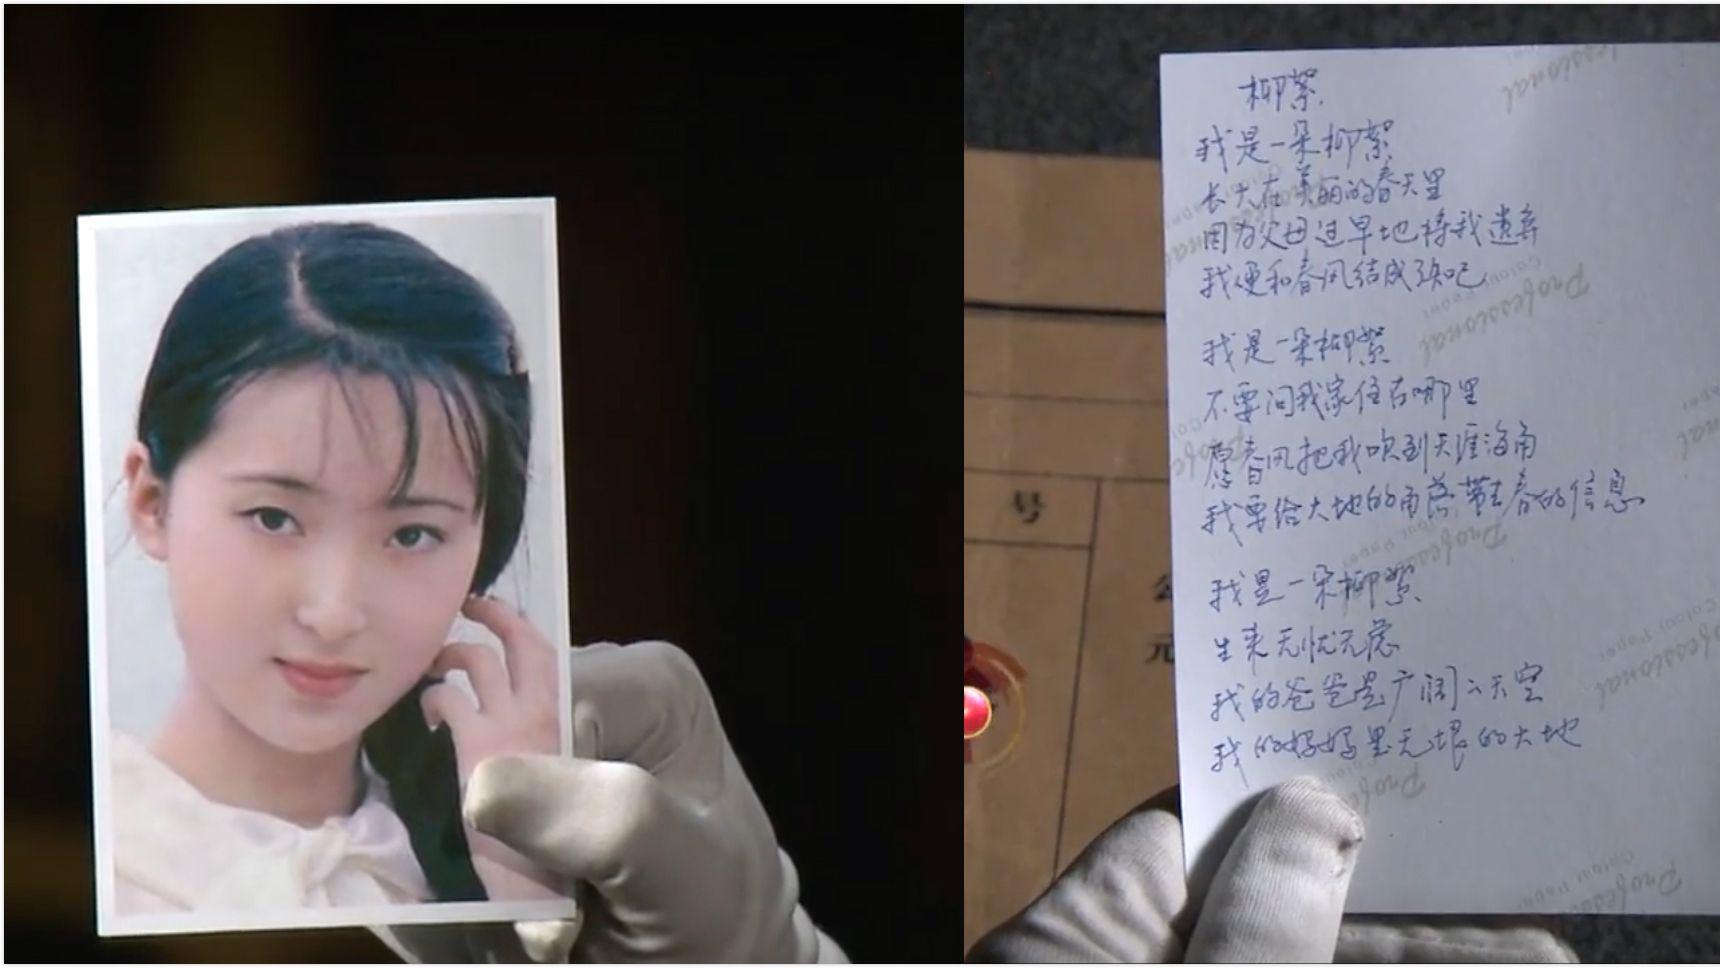 柳絮.
我是一朵柳絮
长大在美丽的春天里
因为父母过早地将我遗弃
我便和春风结成了知己
我是一朵柳絮
不要问我家住在哪里
愿春风把我吹到天涯海角
我要给大地的角落带去春的信息
我是一朵柳絮
生来无忧无虑
我的爸爸是广阔的天空
我的妈妈是无垠的大地
Professional
Colour Paper
号
元